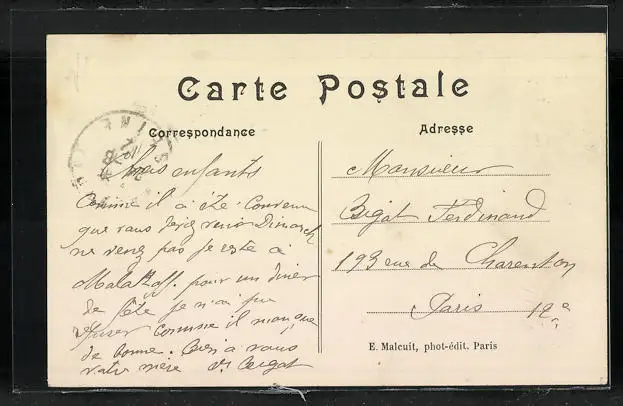 Carte Postale
Correspondance
Chers enfants
Comme il a été convenu
que vous deviez venir Dimanch
ne venez pas je reste à
Malakoff. pour un diner
de fête je n'ai pu
refuser comme il manque
de bonne. Bien à vous
votre mère
Adresse
Monsieur
Bégat Ferdinand
193 rue de Charenton
Paris 12e
E. Malcuit, phot-édit. Paris